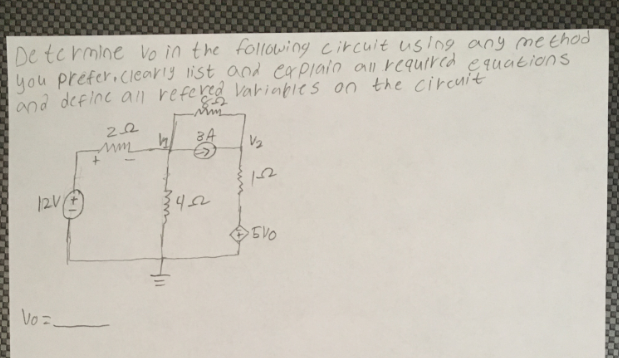 Determine Vo in the following circuit using any method
you prefer, clearly list and explain all required equations
and define all refered Variables on the circuit
8Ω
2Ω
V1
3A
V2
+
-
1Ω
12V
+
-
4Ω
+
5Vo
Vo=